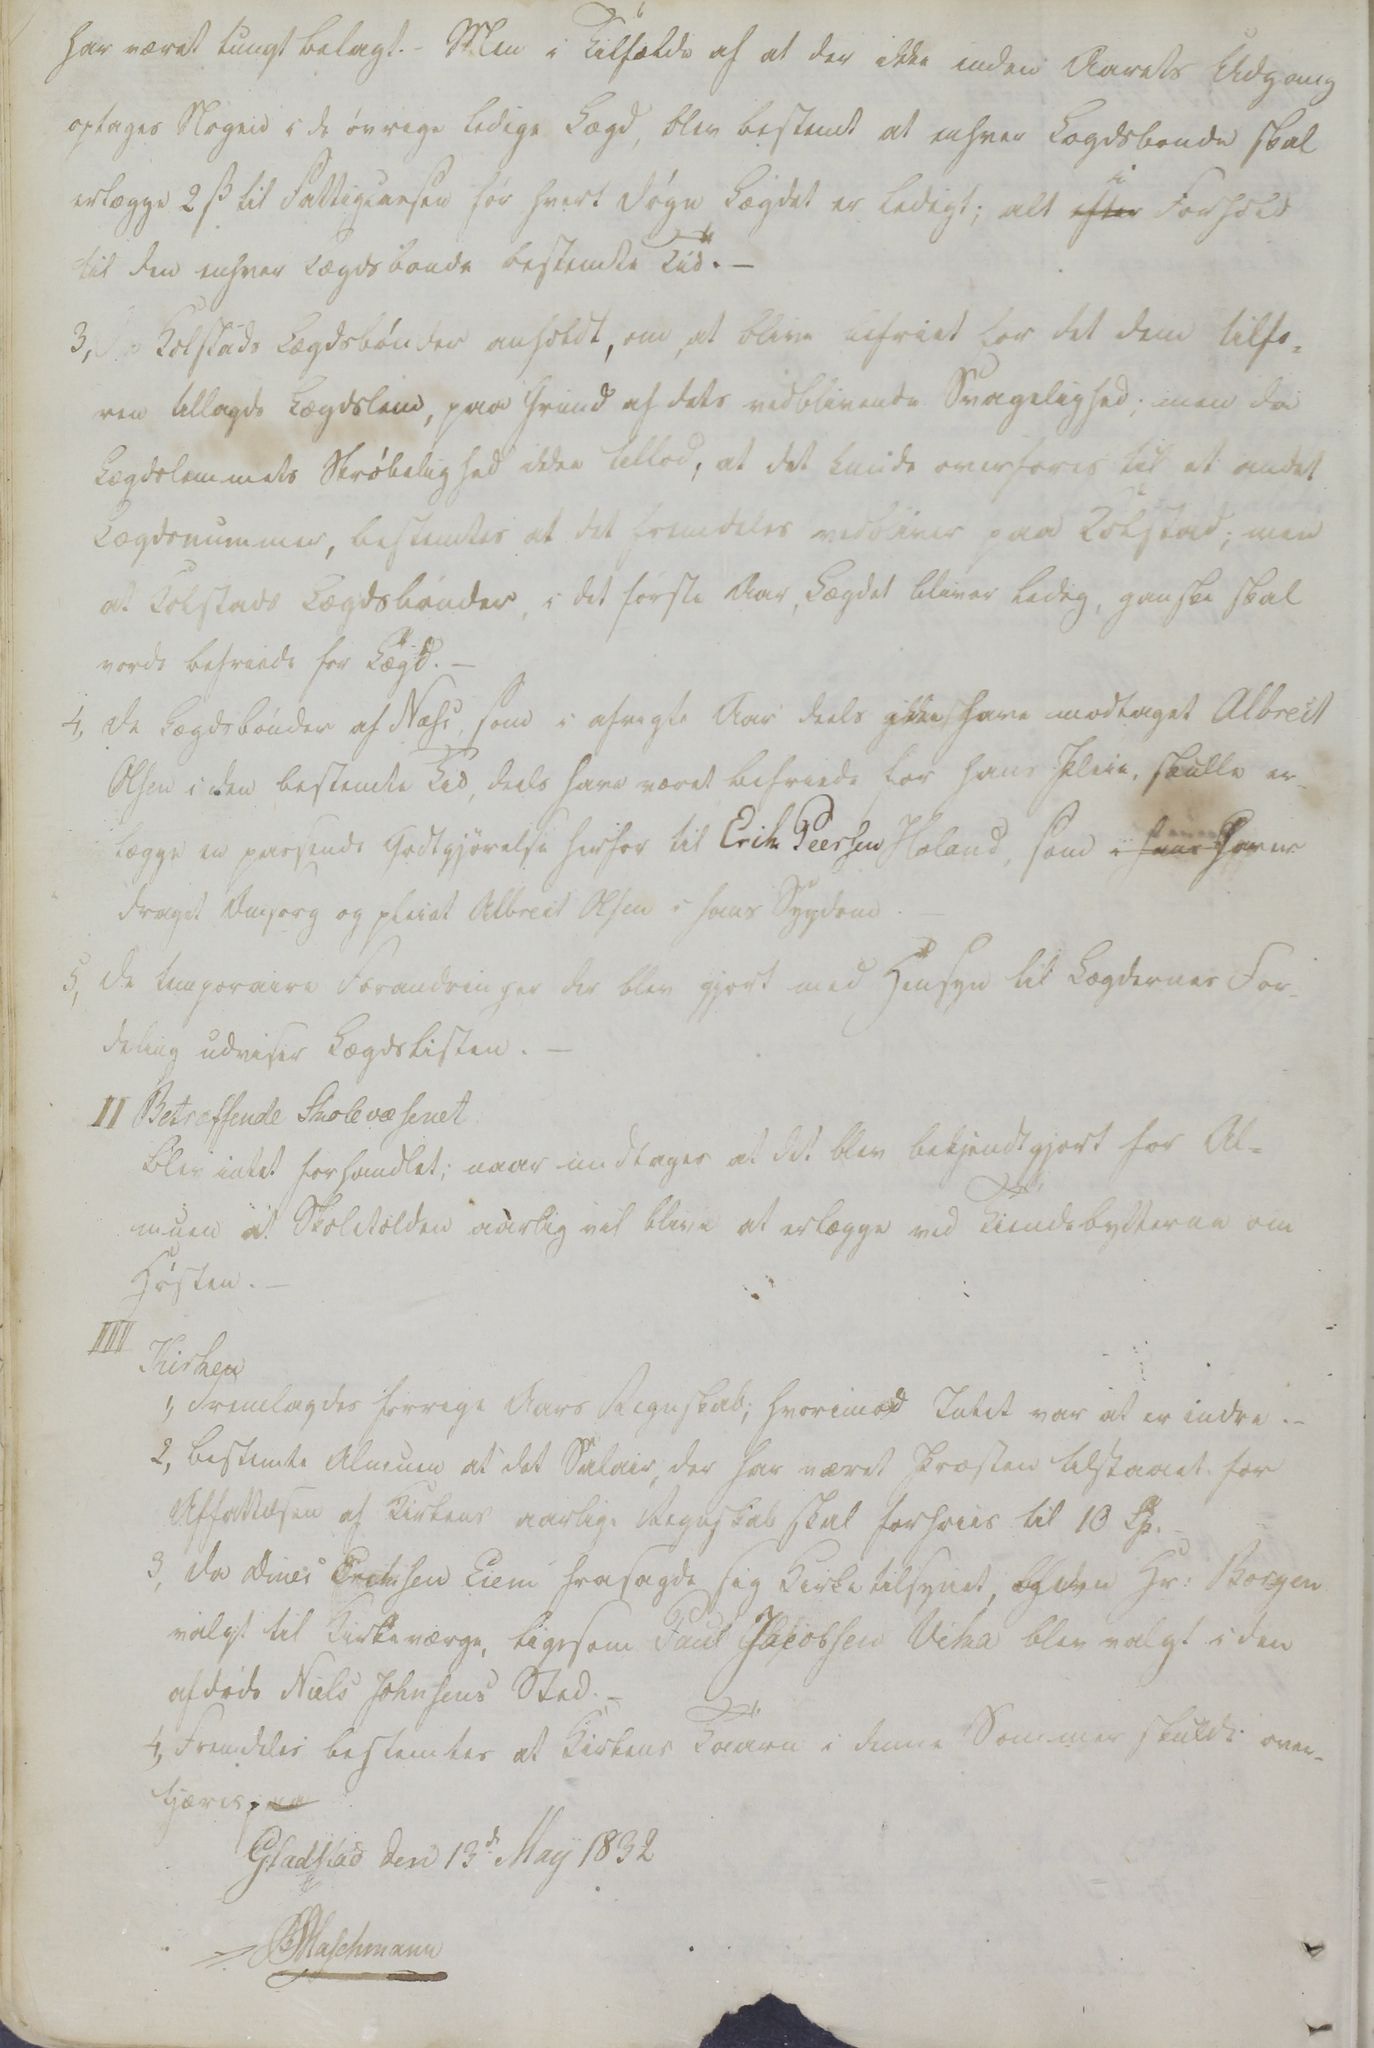 har været tungt belagt. - Men i Tilfælde af at der ikke inden Aarets Udgang
optages Nogen i de øvrige ledige Lægd, blev bestemt at enhver Lægdsbonde skal
erlægge 2 ß til Fattigcassen for hvert Døgn Lægdet er ledigt; alt efter i Forhold
til den enhver Lægdsbonde bestemte Tid. -
3, Kolstads Lægdsbønder anholdt, om, at blive befriet for det dem tilfo-
ren tillagde Lægdslem, paa Grund af dets vedblivende Svagelighed; men da
Lægdslemmets Skrøbelighed ikke tillod, at det kunde overføres til et andet
Lægdsnummer, bestemtes at det fremdeles vedbliver paa Kolstad; men
at Kolstads Lægdsbønder, i det første Aar, Lægdet bliver ledig, ganske skal
vorde befriede for Lægd. -
4, De Lægdsbønder af Næss, som i afvigte Aar deels ikke have modtaget Albreit
Olsen i den bestemte Tid, deels have været befriede for hans Pleie, skulle er-
lægge en passende Godtgjørelse herfor til Erik Peersen Holand, som i haver
draget Omsorg og pleiet Albreit Olsen i hans Sygdom. -
5, De temporaire Forandringer der blev gjort med Hensyn til Lægdernes For-
deling udviser Lægdslisten. -
II Betræffende Skolevæsenet
blev intet forhandlet; naar undtages at det blev bekjendtgjort for Al-
muen at Skoletolden aarlig vil blive at erlægge ved Tiendebytterne om
Høsten. -
III Kirken
1, Fremlagdes forrige Aars Regnskab; hvorimod Intet var at erindre. -
2, bestemte Almuen at det Salair, der har været Præsten tilstaaet for
Affattelsen af Kirkens aarlige Regnskab skal forhøies til 10 Sp. -
3, Da Erichsen Eiem frasagde sig Kirketilsynet, blev Hr: Borgen
valgt til Kirkeværge, ligesom Paul Jacobsen Vika blev valgt i den
afdøde Niels Johnsens Sted. -
4, Fremdeles bestemtes at Kirkens Taarn i denne Sommer skulde over-
tjæres.
Gladstad den 13de May 1832
Maschmann